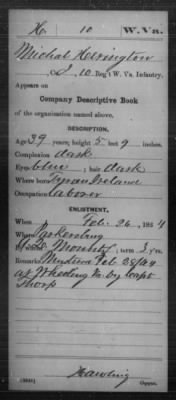 H. 10 W. Va.
Michal Herrington
, 10 Reg't W. Va. Infantry.
Appears on
Company Descriptive Book
of the organization named above.
DESCRIPTION.
Age 39 years; height 5 feet 9 inches.
Complexion dark
Eyes blue; hair dark
Where born Ireland
Occupation laborer
ENLISTMENT.
When Feb. 26, 1864
Where Parkersburg
By whom; term 3 y'rs.
Remarks Mustered Feb 28/64
at Wheeling Va by Capt
Thorp
Copyist.